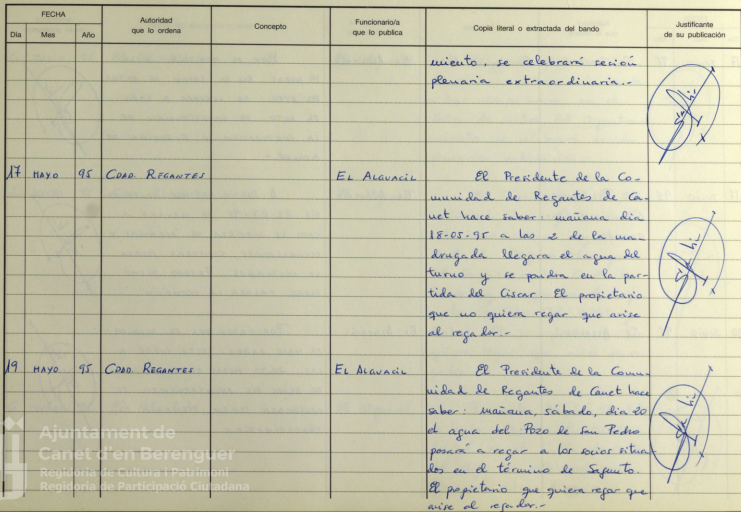 FECHA
Día Mes Año
Autoridad
que lo ordena
Concepto
Funcionario/a
que lo publica
Copia literal o extractada del bando
Justificante
de su publicación
miento, se celebrará sesión
plenaria extraordinaria.-
17 MAYO 95 CDAD. REGANTES EL ALGUACIL El Presidente de la Co-
munidad de Regantes de Ca-
net hace saber: mañana dia
18-05-95 a las 2 de la ma-
drugada llegara el agua del
turno y se pondra en la par-
tida del Ciscar. El propietario
que no quiera regar que avise
al regador.-
19 MAYO 95 CDAD. REGANTES EL ALGUACIL El Presidente de la Comu-
nidad de Regantes de Canet hace
saber: mañana, sábado, dia 20
el agua del Pozo de San Pedro
pasará a regar a los socios situa-
dos en el término de Sagunto.
El propietario que quiera regar que
avise al regador.-
Ajuntament de
Canet d'en Berenguer
Regidoria de Cultura i Patrimoni
Regidoria de Participació Ciutadana